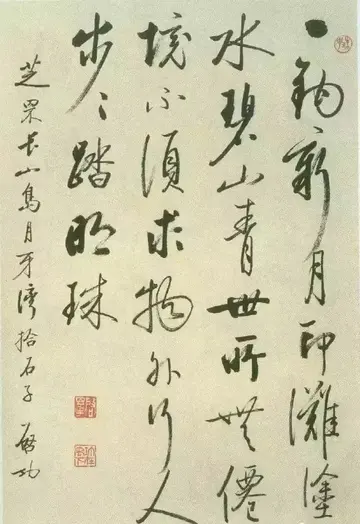 一鉤新月印灘塗
水碧山青世所無僊
境不須求物外行人
步步踏明珠
芝罘長山島月牙灣拾石子 啟功